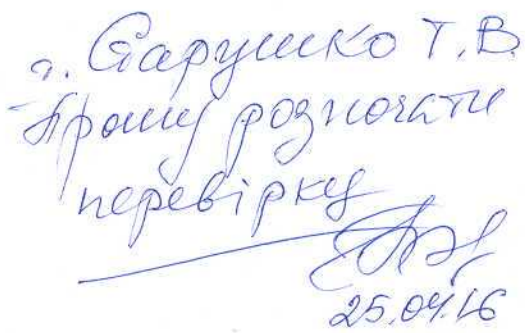 г. Старушко Т.В.
Прошу розпочати
перевірку
25.04.16